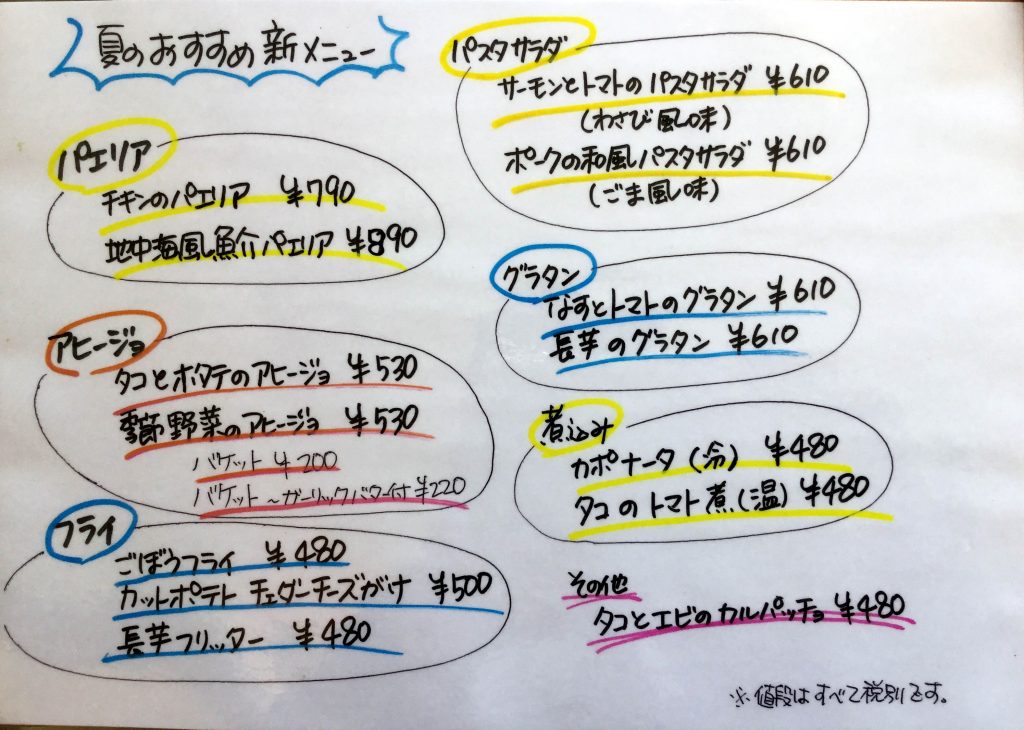 夏のおすすめ新メニュー
パエリア
チキンのパエリア ¥790
地中海風魚介パエリア ¥890
アヒージョ
タコとホタテのアヒージョ ¥530
季節野菜のアヒージョ ¥530
バケット ¥200
バケット～ガーリックバター付 ¥220
フライ
ごぼうフライ ¥480
カットポテト チェダーチーズがけ ¥500
長芋フリッター ¥480
パスタサラダ
サーモンとトマトのパスタサラダ ¥610
(わさび風味)
ポークの和風パスタサラダ ¥610
(ごま風味)
グラタン
なすとトマトのグラタン ¥610
長芋のグラタン ¥610
煮込み
カポナータ(冷) ¥480
タコのトマト煮(温) ¥480
その他
タコとエビのカルパッチョ ¥480
※値段はすべて税別です。